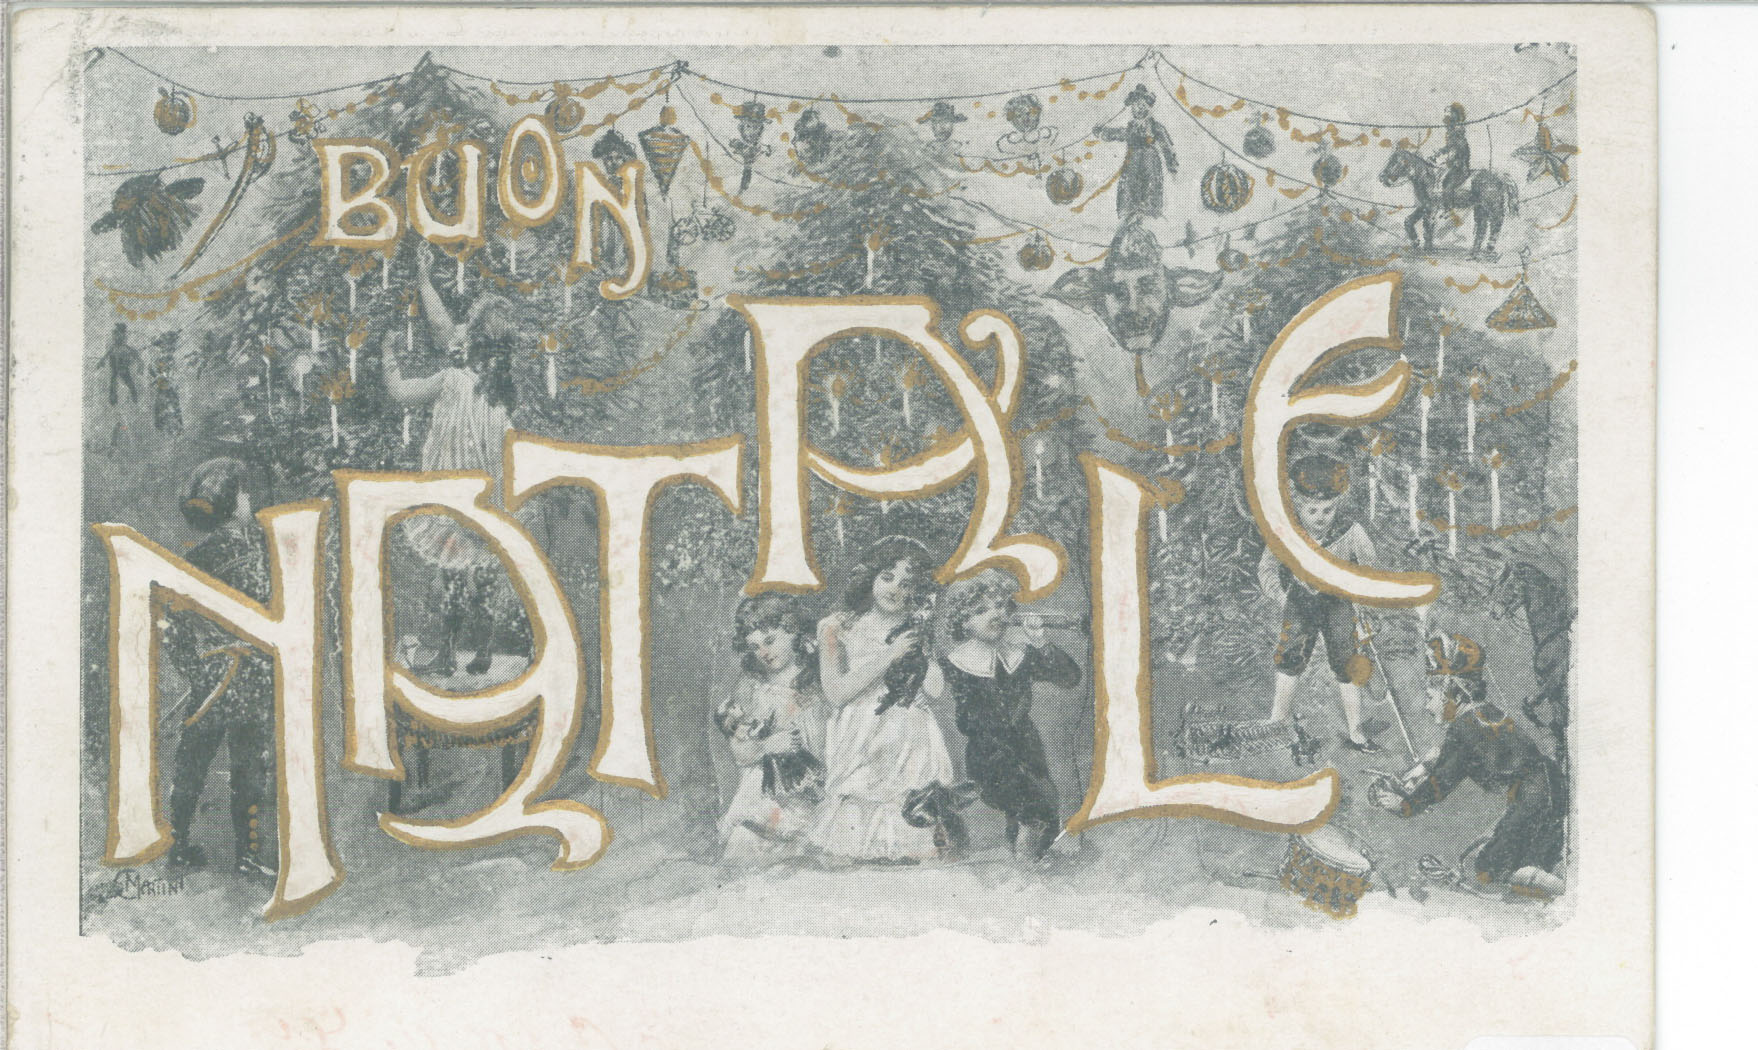 BUON
NATALE
C. MARTINI